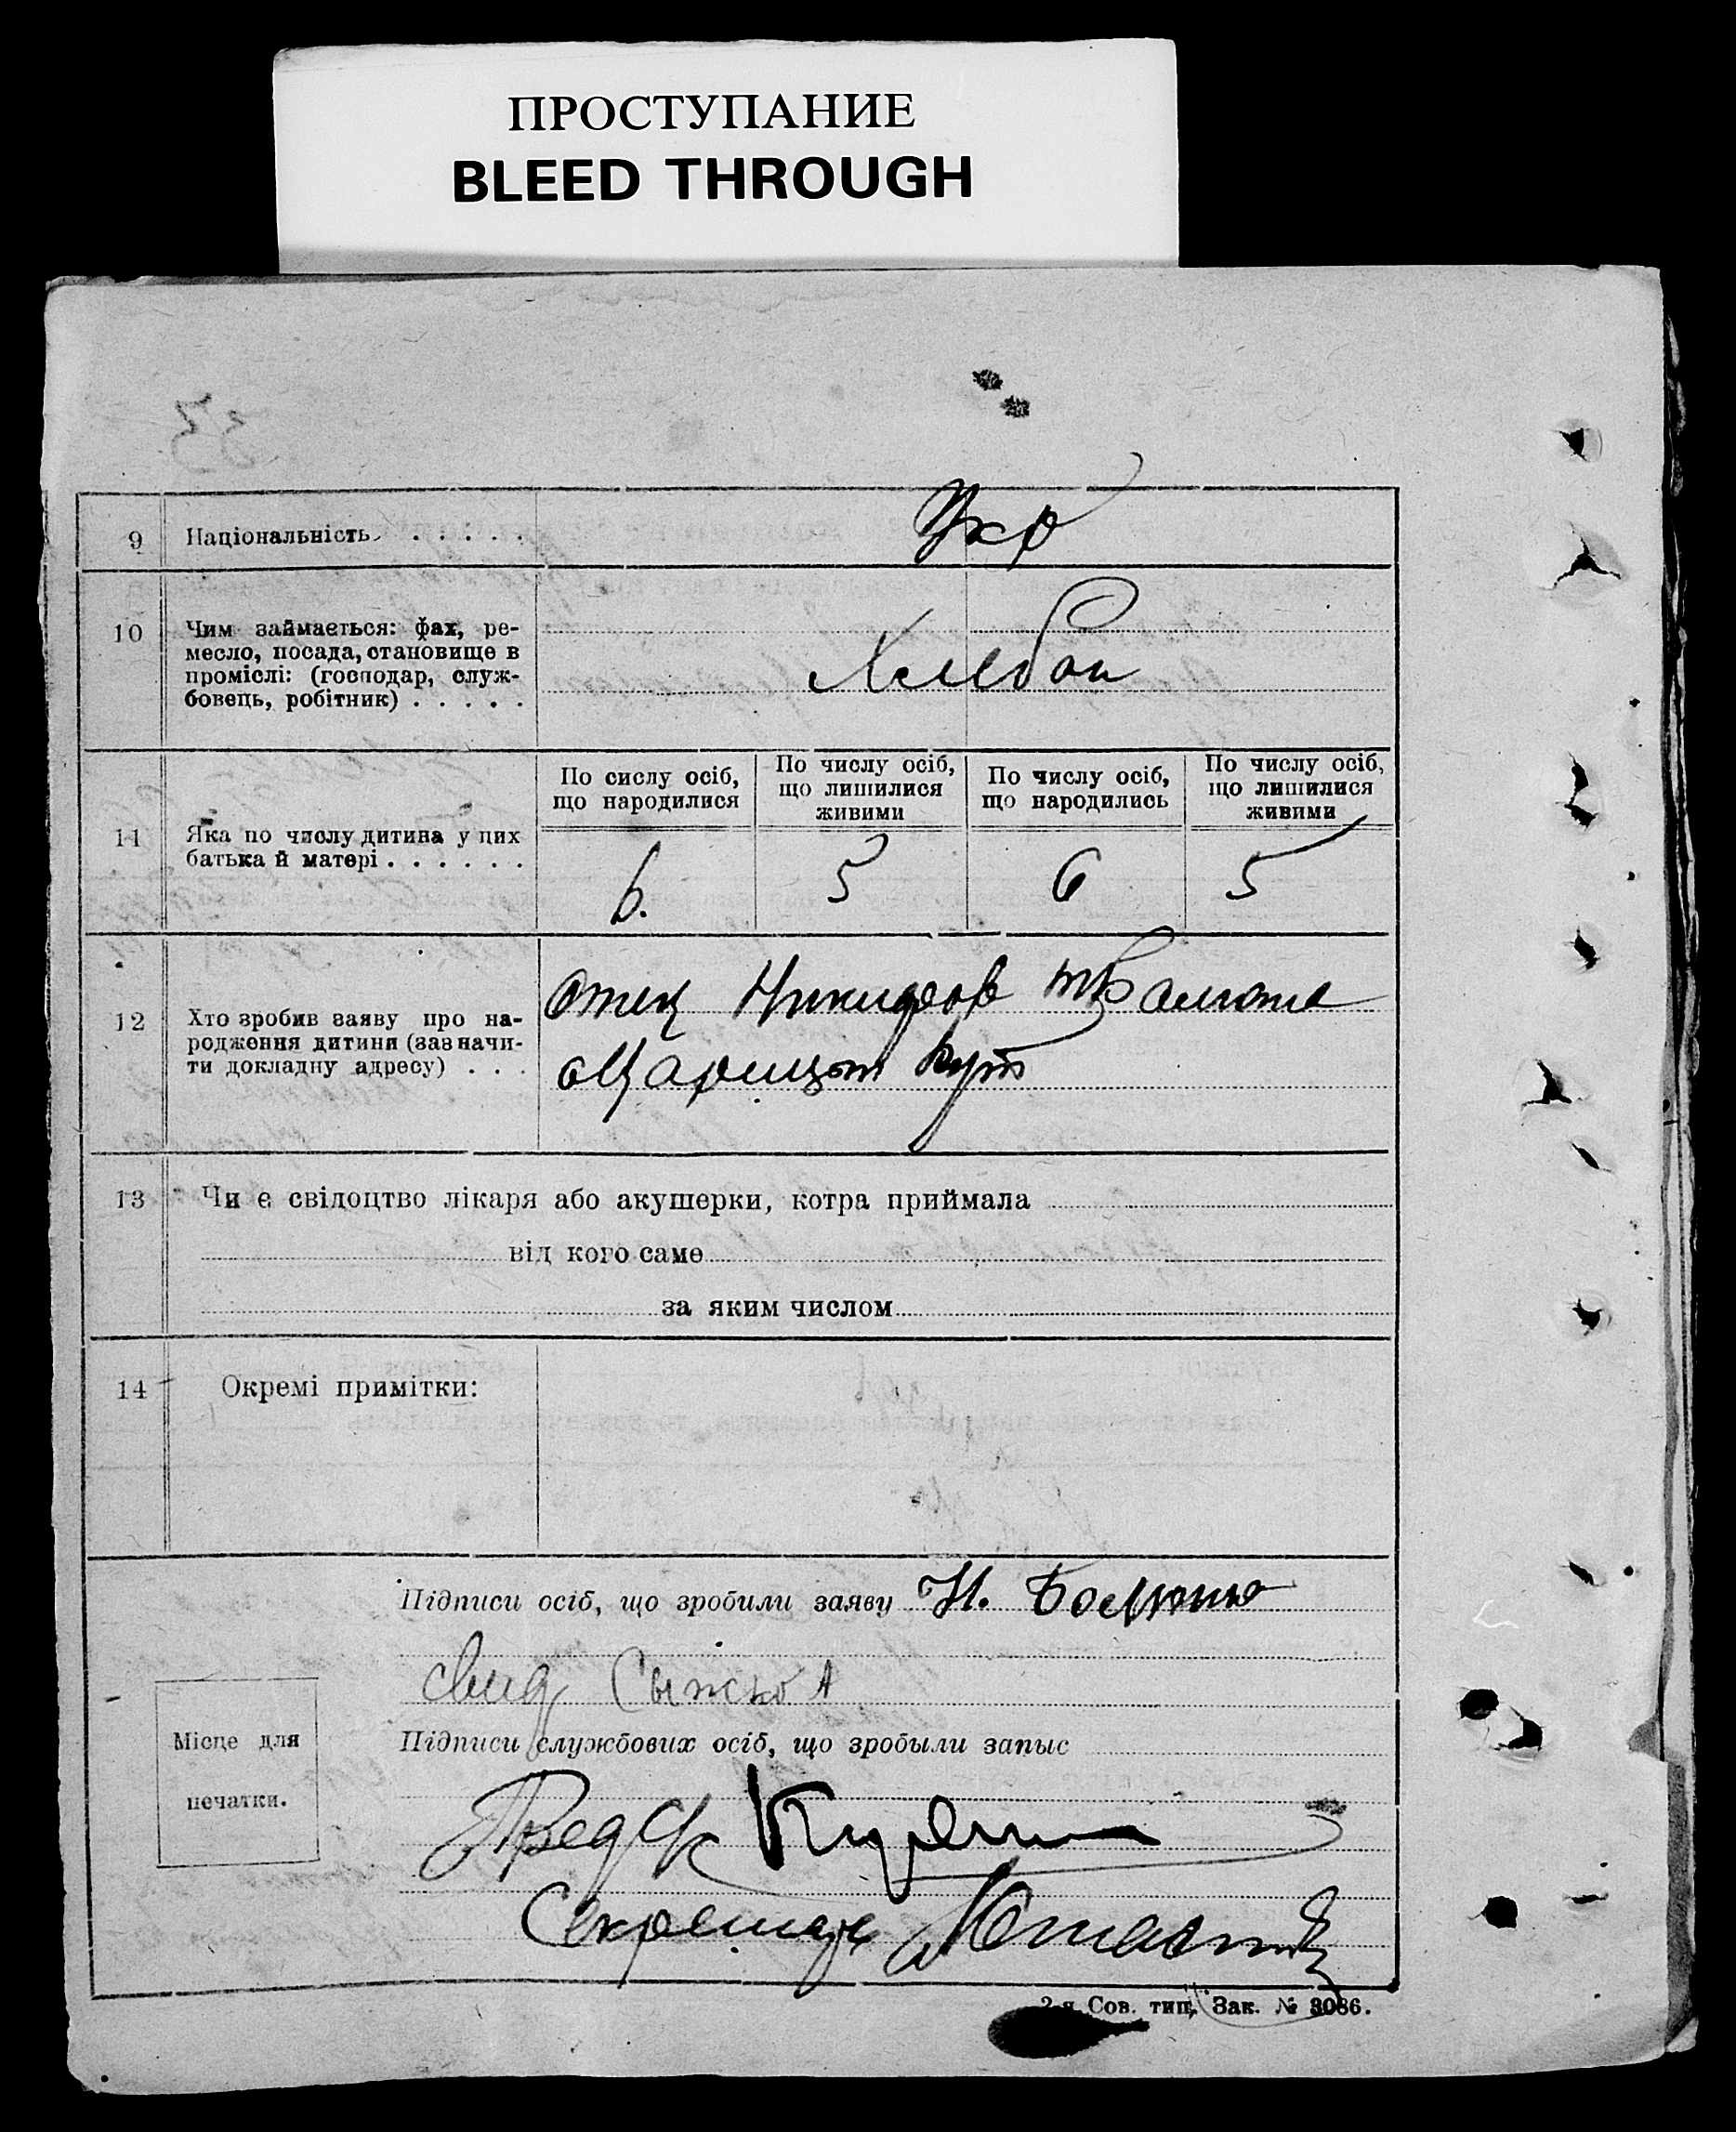 ПРОСТУПАНИЕ
BLEED THROUGH
33
9 Національність . . . . . Укр
10 Чим займається: фах, ре-
месло, посада, становище в
проміслі: (господар, служ-
бовець, робітник) . . . . .
Хлебоп
По сислу осіб,
що народилися
По числу осіб,
що лишилися
живими
По числу осіб,
що народились
По числу осіб,
що лишилися
живими
11 Яка по числу дитина у цих
батька й матері . . . . . .
6. 5 6 5
12 Хто зробив заяву про на-
родження дитини (зазначи-
ти докладну адресу) . . .
отец Никифор
Кут
13 Чи є свідоцтво лікаря або акушерки, котра приймала
від кого саме
за яким числом
14 Окремі примітки:
Підписи осіб, що зробили заяву Н.
свид
Місце для
печатки.
Підписи службових осіб, що зробыли запыс
Пред
Секретарь
2-я Сов. тип. Зак. № 3086.